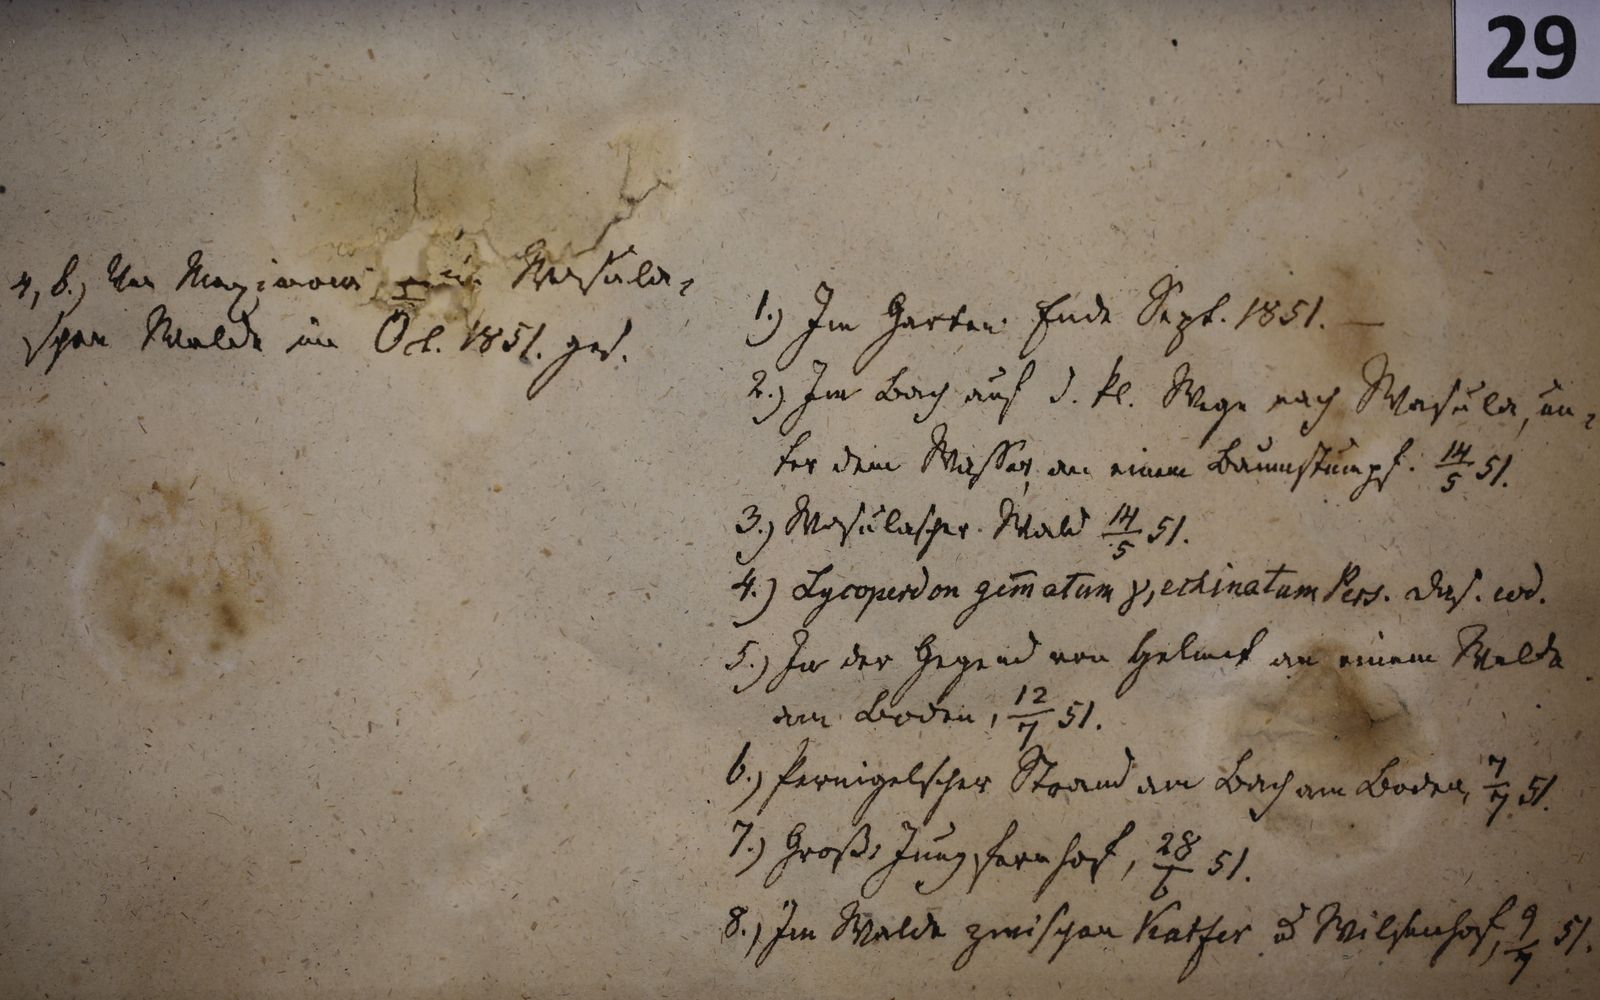 29
4, b.) Von Maximowi im Wasula-
schen Walde im Oct. 1851. ges.
1.) Im Garten Ende Sept. 1851. —
2.) Im Bach auf d. kl. Wege nach Wasula, un-
ter dem Wasser, an einem Baumstumpf. 14/5 51.
3.) Wasulascher Wald 14/5 51.
4.) Lycoperdon gem̅atum γ, echinatum Pers. das. eod.
5.) In der Gegend von Helmet an einem Walde
am Boden, 12/7 51.
6.) Pernigelscher Strand am Bach am Boden, 7/7 51.
7.) Groß-Jungfernhof, 28/6 51.
8.) Im Walde zwischen Kaefer u Wilsenhof, 9/7 51.